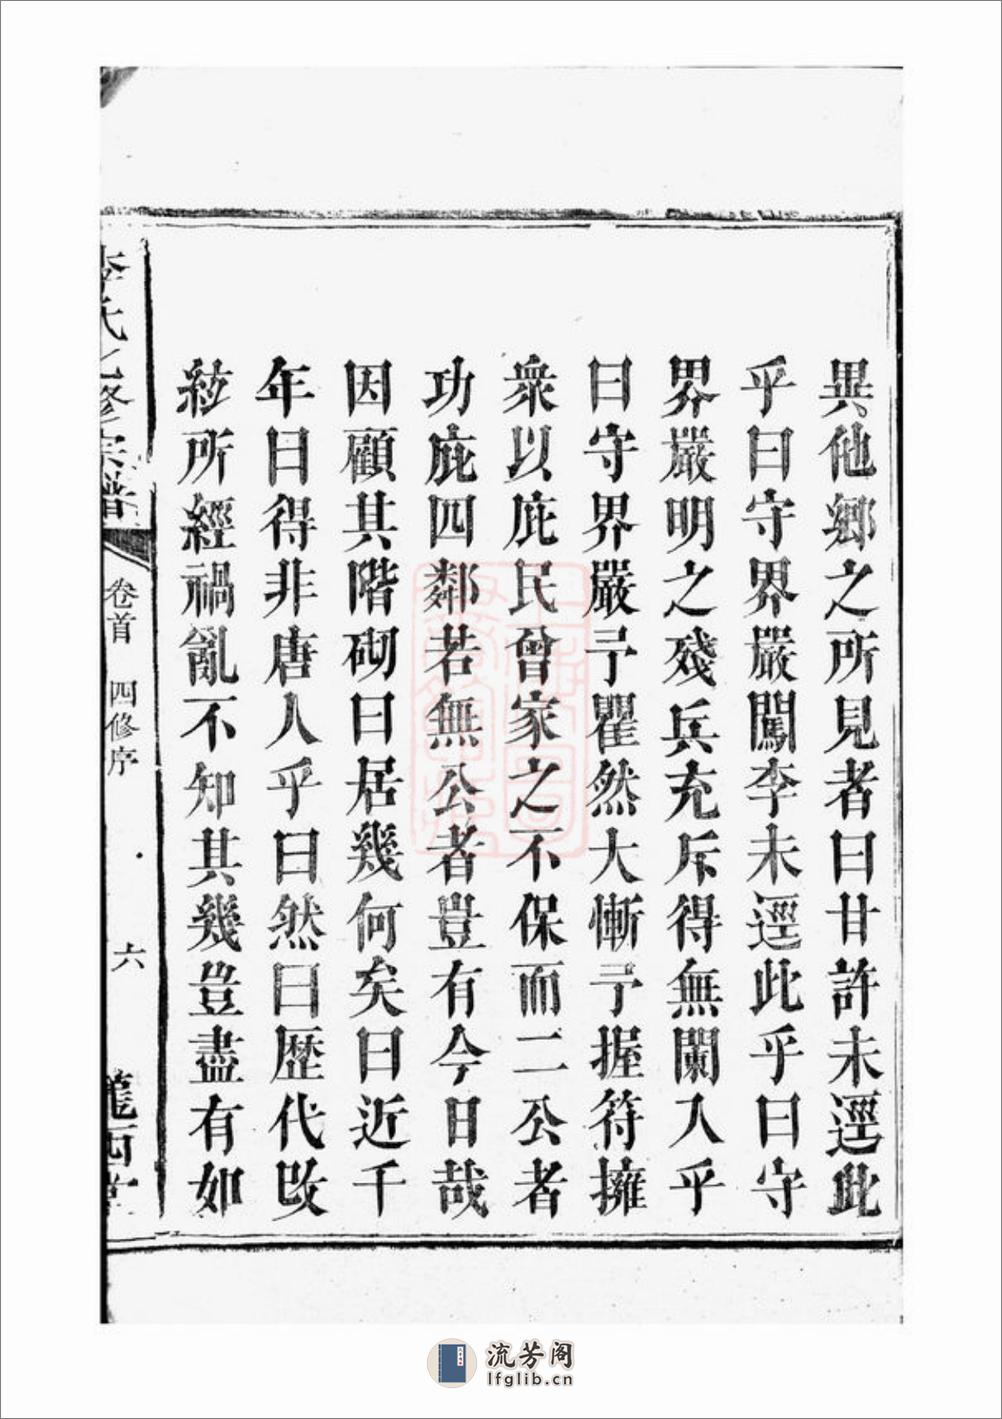 異他鄉之所見者曰甘許未逕此
乎曰守界嚴闖李未逕此乎曰守
界嚴明之殘兵充斥得無闌入乎
曰守界嚴予瞿然大慚予握符擁
衆以庇民曾家之不保而二公者
功庇四鄰若無公者豈有今日哉
因顧其階砌曰居幾何矣曰近千
年曰得非唐人乎曰然曰歷代改
絃所經禍亂不知其幾豈盡有如
李氏七修宗譜
卷首 四修序
六
隴西堂
流芳阁
lfglib.cn